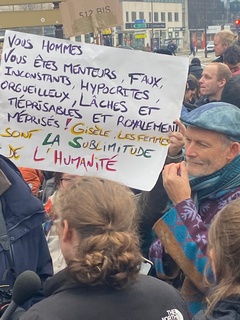 512 BIS
VOUS HOMMES
VOUS ÊTES MENTEURS, FAUX,
INCONSTANTS, HYPOCRITES,
ORGUEILLEUX, LÂCHES ET
MÉPRISABLES ET ROYALEMENT
MÉPRISÉS! GISÈLE, LES FEMMES
SONT LA SUBLIMITUDE
DE L'HUMANITÉ
THE NORTH